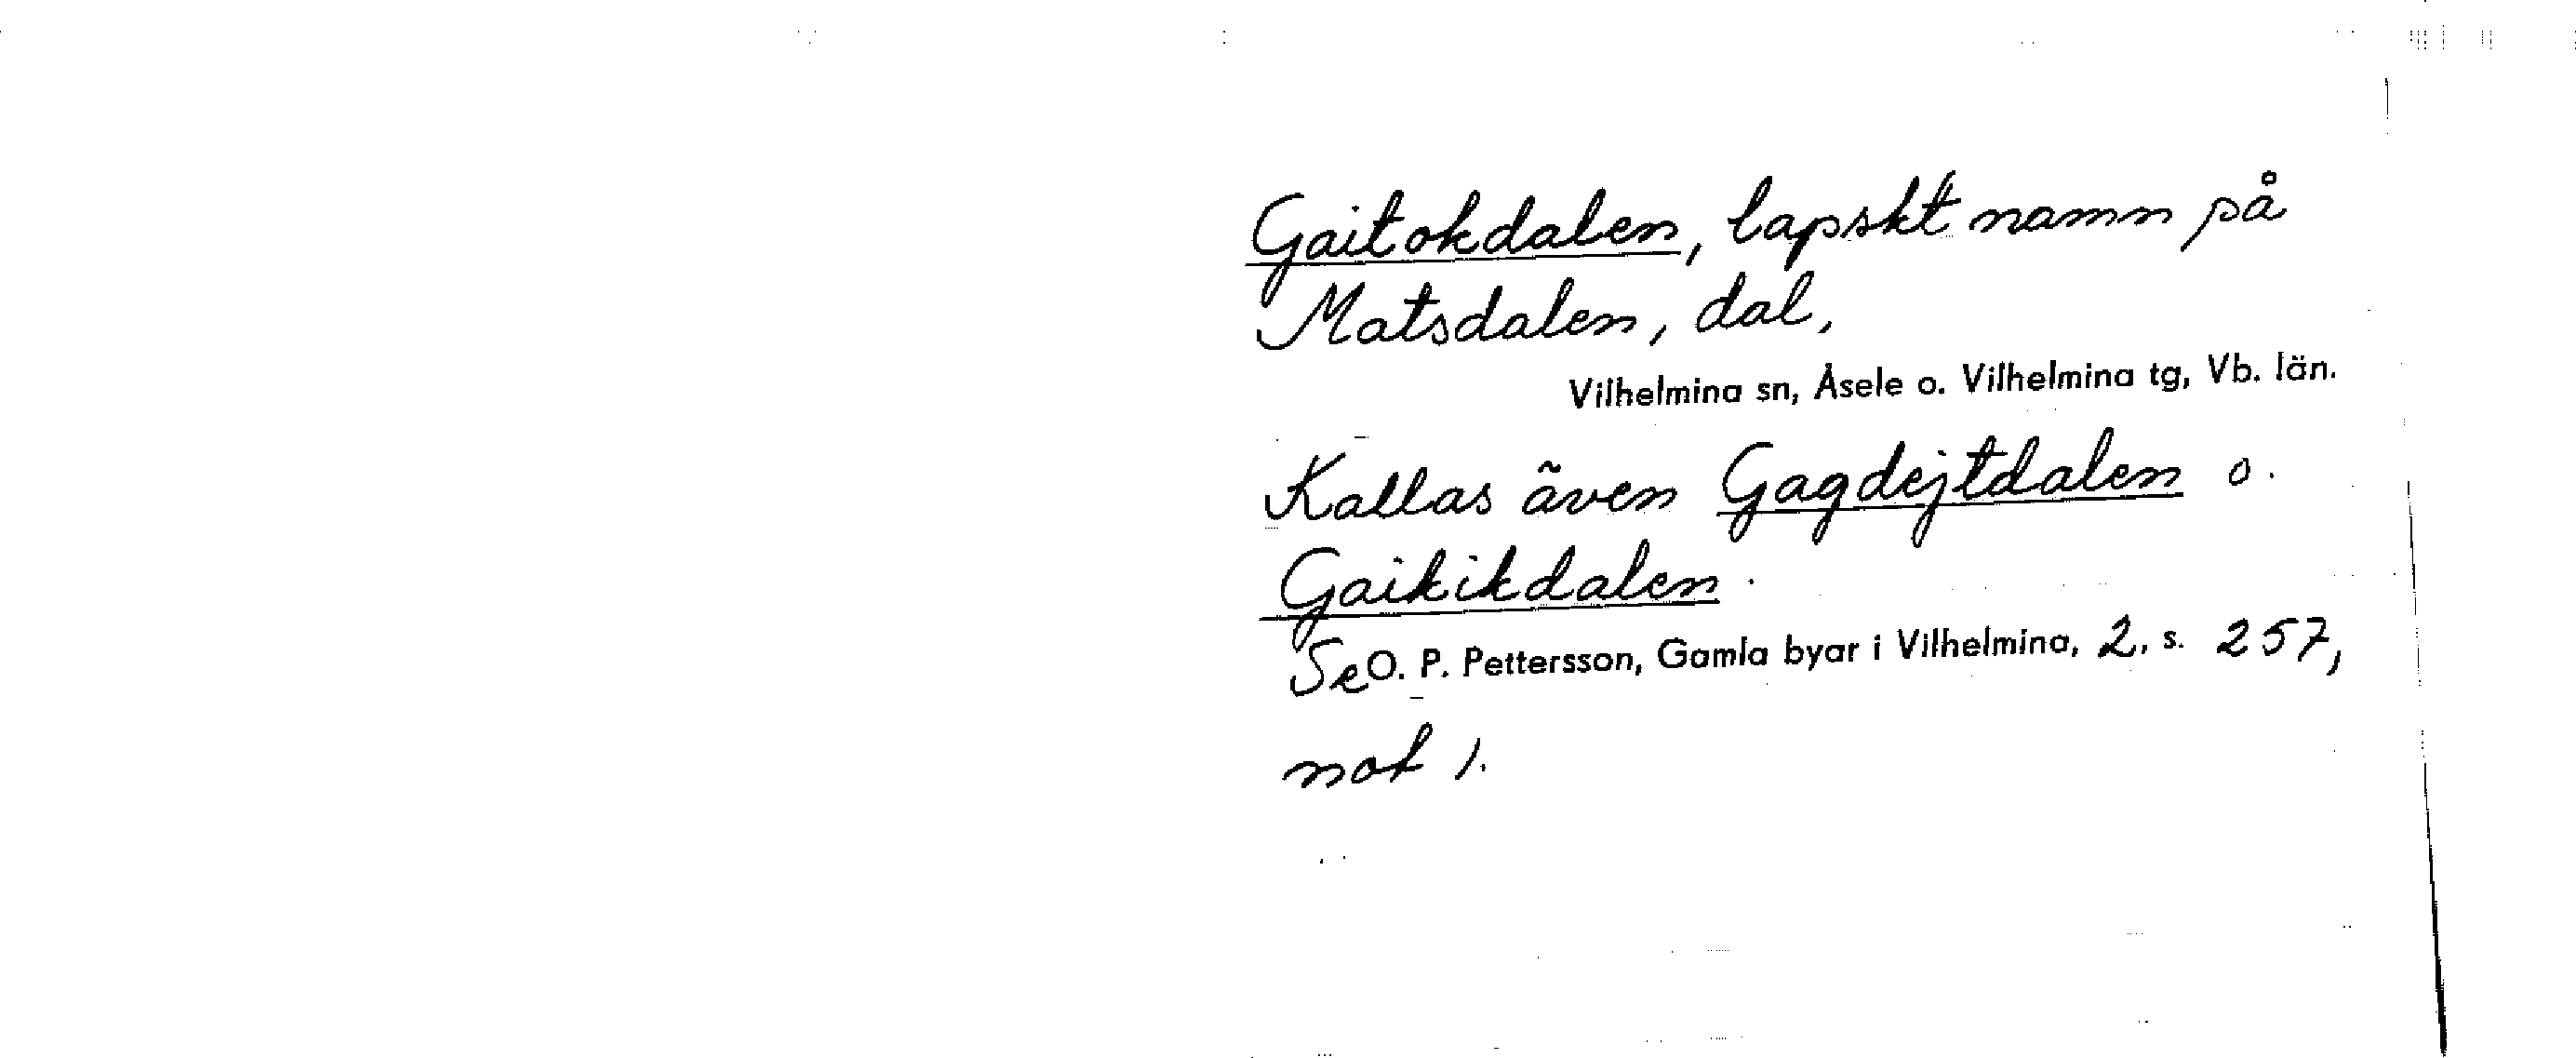 Gaitokdalen, lapskt namn på
Matsdalen, dal,
Vilhelmina sn, Åsele o. Vilhelmina tg, Vb. län.
Kallas även Gagdejtdalen o.
Gaikikdalen.
Se O. P. Pettersson, Gamla byar i Vilhelmina, 2, s. 257,
not 1.